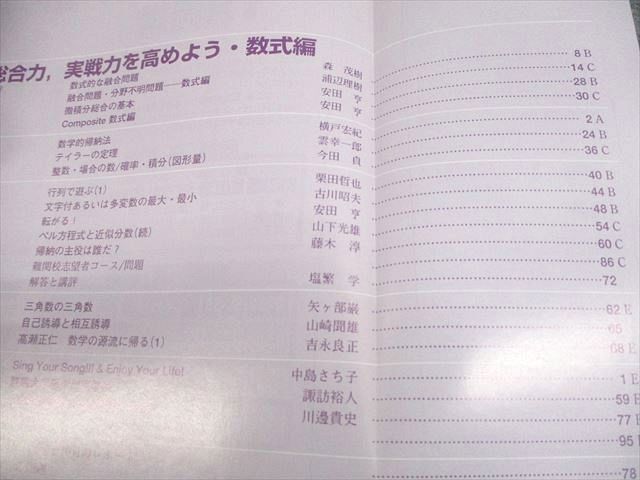 総合力，実戦力を高めよう・数式編
数式的な融合問題 森 茂樹 8 B
融合問題・分野不明問題——数式編 浦辺理樹 14 C
微積分総合の基本 安田 亨 28 B
Composite 数式編 安田 亨 30 C
数学的帰納法 横戸宏紀 2 A
テイラーの定理 雲幸一郎 24 B
整数・場合の数/確率・積分(図形量) 今田 貞 36 C
行列で遊ぶ(1) 栗田哲也 40 B
文字付あるいは多変数の最大・最小 古川昭夫 44 B
転がる！ 安田 亨 48 B
ペル方程式と近似分数(続) 山下光雄 54 C
帰納の主役は誰だ？ 藤木 淳 60 C
難関校志望者コース/問題 86 C
解答と講評 塩繁 学 72
三角数の三角数 矢ヶ部巌 62 E
自己誘導と相互誘導 山崎聞雄 65
高瀬正仁 数学の源流に帰る(1) 吉永良正 68 E
Sing Your Song!!! & Enjoy Your Life! 中島さち子 1 E
諏訪裕人 59 E
川邊貴史 77 E
95 E
78